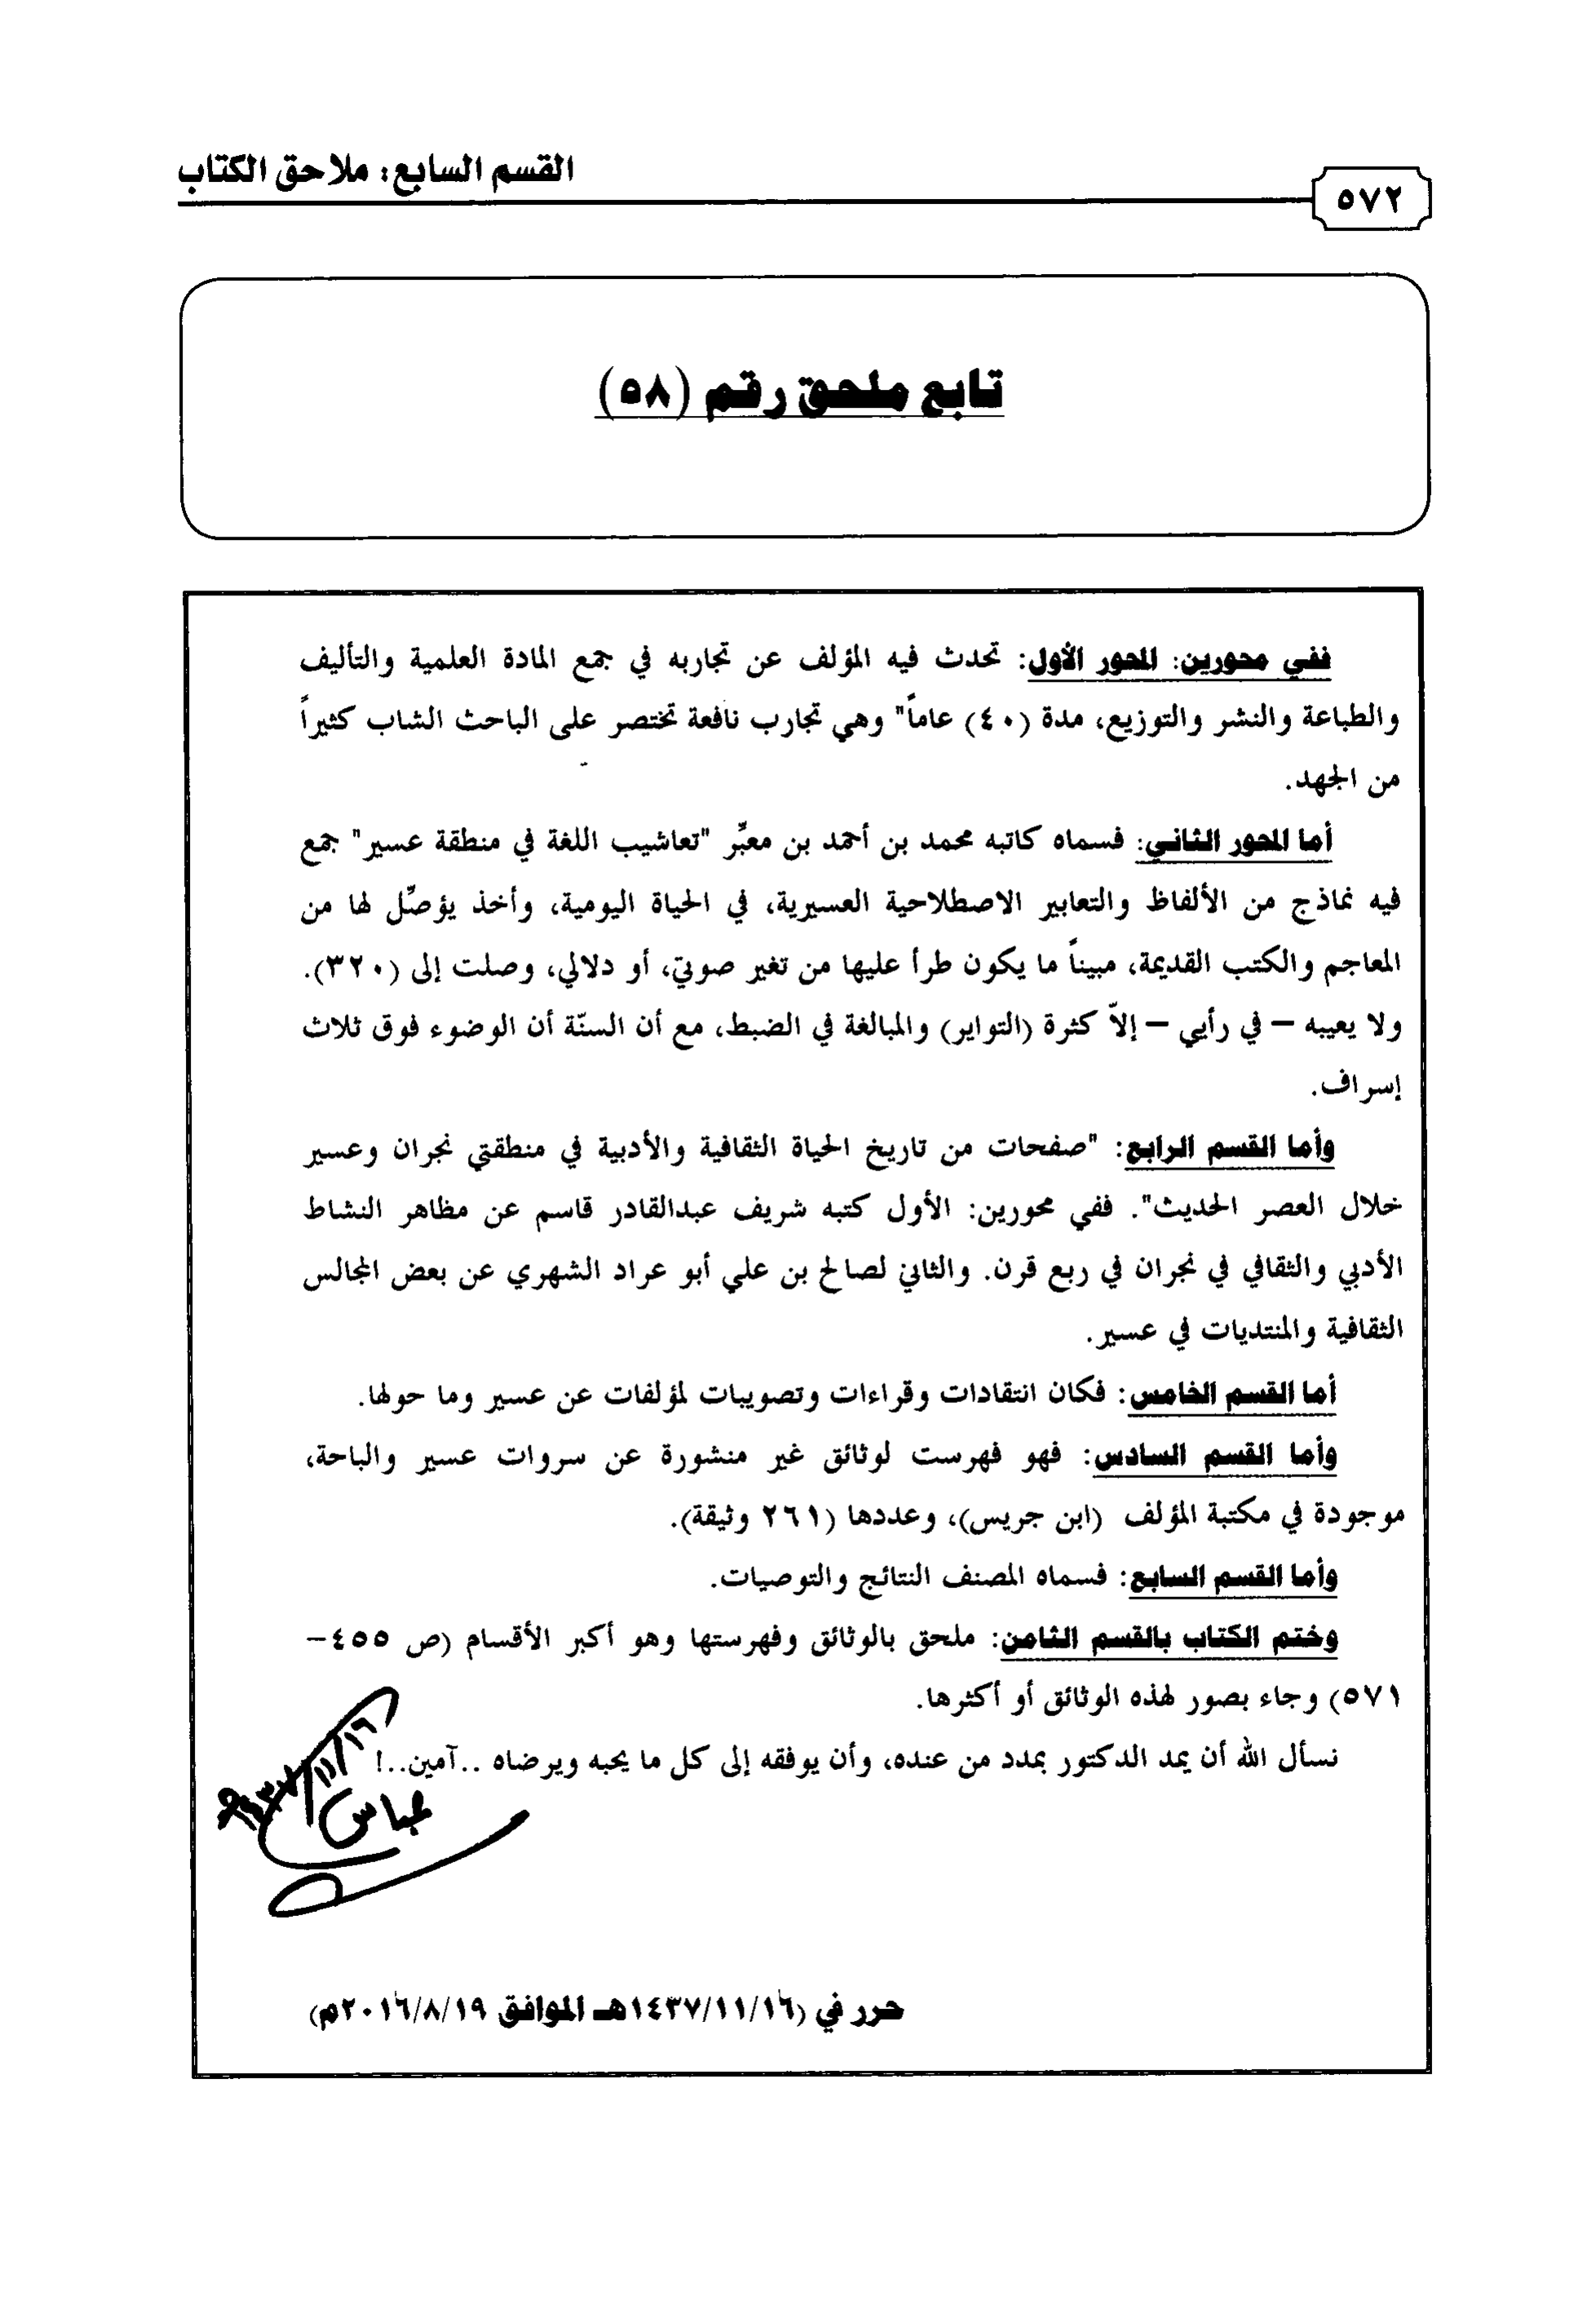 القسم السابع: ملاحق الكتاب
٥٧٢
تابع ملحق رقم (٥٨)
ففي محورين: المحور الأول: تحدث فيه المؤلف عن تجاربه في جمع المادة العلمية والتأليف
والطباعة والنشر والتوزيع، مدة (٤٠) عاماً" وهي تجارب نافعة تختصر على الباحث الشاب كثيراً
من الجهد.
أما المحور الثاني: فسماه كاتبه محمد بن أحمد بن معبِّر "تعاشيب اللغة في منطقة عسير" جمع
فيه نماذج من الألفاظ والتعابير الاصطلاحية العسيرية، في الحياة اليومية، وأخذ يؤصِّل لها من
المعاجم والكتب القديمة، مبيناً ما يكون طرأ عليها من تغير صوتي، أو دلالي، وصلت إلى (٣٢٠).
ولا يعيبه – في رأيي – إلاّ كثرة (التواير) والمبالغة في الضبط، مع أن السنّة أن الوضوء فوق ثلاث
إسراف.
وأما القسم الرابع: "صفحات من تاريخ الحياة الثقافية والأدبية في منطقتي نجران وعسير
خلال العصر الحديث". ففي محورين: الأول كتبه شريف عبدالقادر قاسم عن مظاهر النشاط
الأدبي والثقافي في نجران في ربع قرن. والثاني لصالح بن علي أبو عراد الشهري عن بعض المجالس
الثقافية والمنتديات في عسير.
أما القسم الخامس: فكان انتقادات وقراءات وتصويبات لمؤلفات عن عسير وما حولها.
وأما القسم السادس: فهو فهرست لوثائق غير منشورة عن سروات عسير والباحة،
موجودة في مكتبة المؤلف (ابن جريس)، وعددها (٢٦١ وثيقة).
وأما القسم السابع: فسماه المصنف النتائج والتوصيات.
وختم الكتاب بالقسم الثامن: ملحق بالوثائق وفهرستها وهو أكبر الأقسام (ص ٤٥٥–
٥٧١) وجاء بصور لهذه الوثائق أو أكثرها.
نسأل الله أن يمد الدكتور بمدد من عنده، وأن يوفقه إلى كل ما يحبه ويرضاه ..آمين..!
حرر في (١٤٣٧/١١/١٦هـ الموافق ٢٠١٦/٨/١٩م)